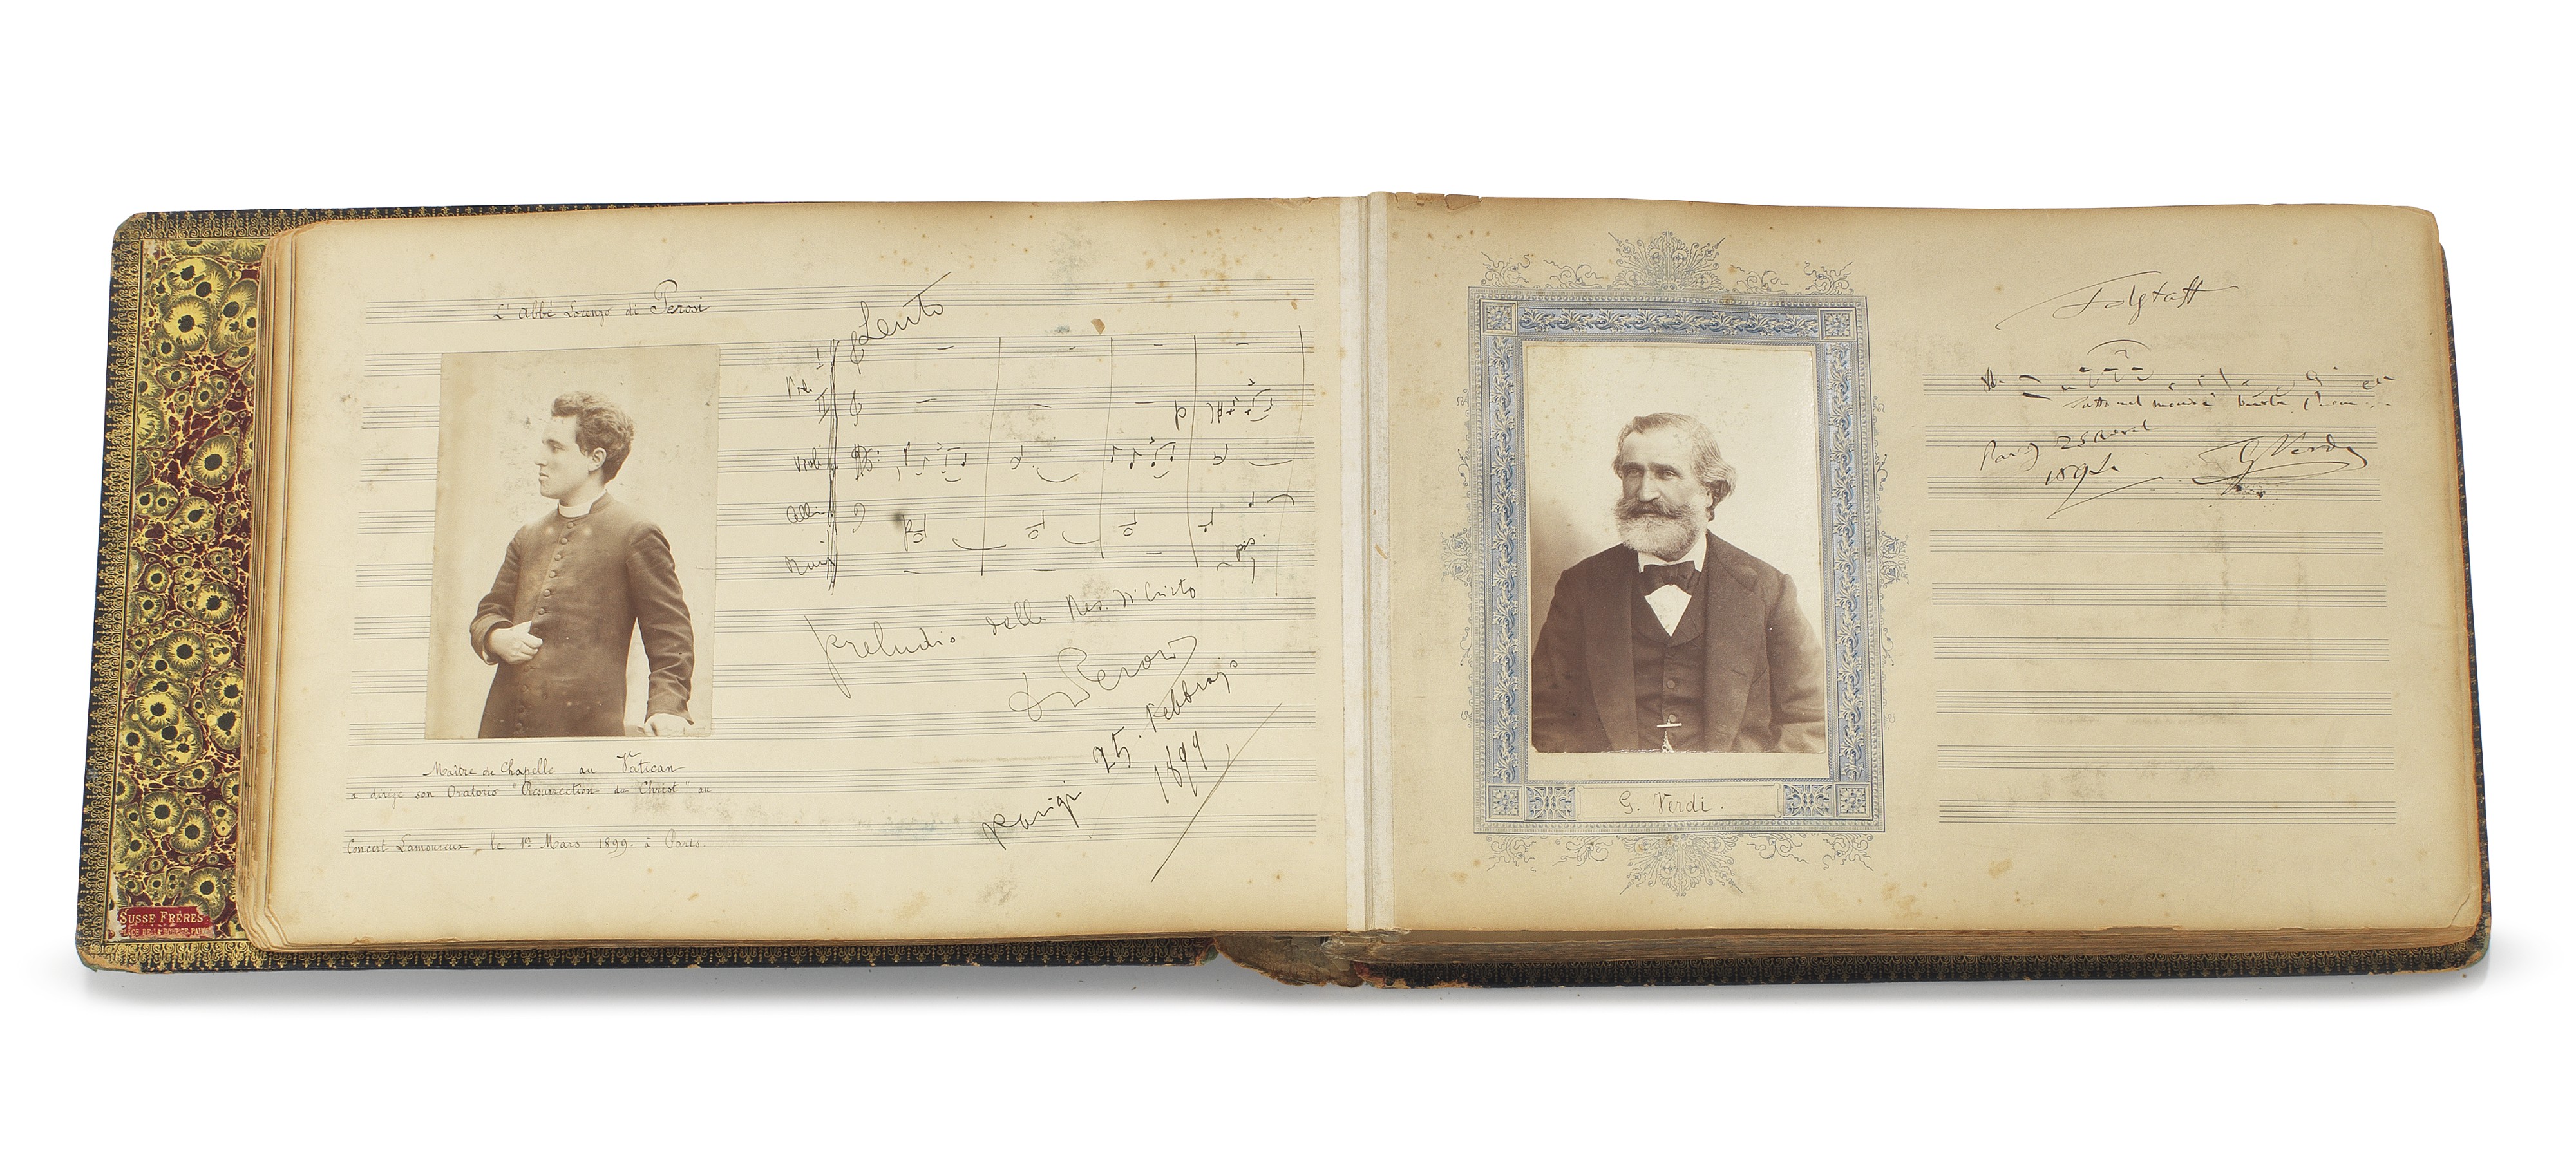 L'Abbé Lorenzo di Perosi
Lento
Viol. I
II
Viole
Preludio della Res. di Cristo
L Perosi
Parigi 25. Febbraio
1899
Maître de Chapelle au Vatican
a dirigé son Oratorio "Résurrection du Christ" au
Concert Lamoureux, le 1er Mars 1899. à Paris.
SUSSE FRÈRES
PLACE DE LA BOURSE, PARIS
5
G. Verdi.
Falstaff
Tutto nel mondo è burla
25 Avril
1894
G Verdi